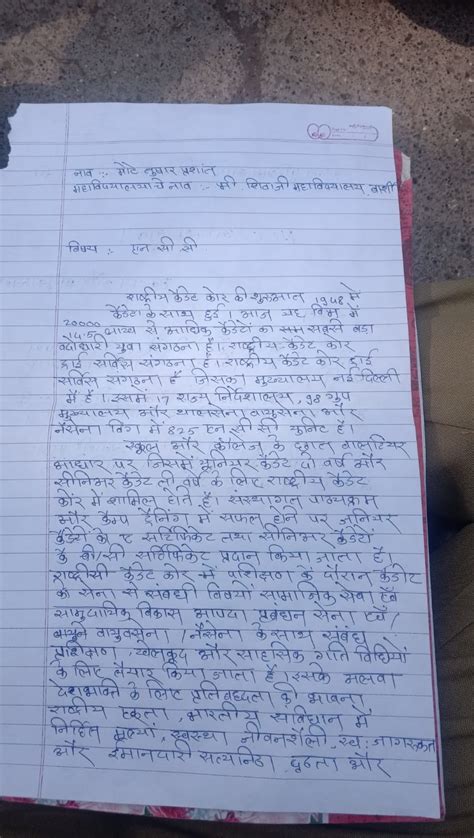 नाव :- मोटे तुषार प्रशांत
महाविद्यालयाचे नाव :- श्री शिवाजी महाविद्यालय बार्शी
विषय :- एन सी सी
राष्ट्रीय कॅडेट कोर की शुरुआत 1948 मे
20000 कॅडेटो के साथ हुई आज यह विश्व में
14.5 लाख से अधिक कॅडेटो का सबसे बडा
वर्दीधारी युवा संगठना है। राष्ट्रीय कॅडेट कोर
सर्विस संगठना है। राष्ट्रीय कॅडेट कोर
सर्विस संगठना है जिसका मुख्यालय नई दिल्ली
में है। इसमे 17 राज्य निर्देशालय, 98 ग्रुप
मुख्यालय और थलसेना वायुसेना और
नौसेना विंग में 825 एन सी सी युनिट है।
स्कूल और कॉलेज के
आधार पर जिसमें जूनियर कॅडेट दो वर्ष और
सीनिअर कॅडेट तीन वर्ष के लिए राष्ट्रीय कॅडेट
कोर मे शामिल होते है। संस्थागत पाठ्यक्रम
और कैम्प ट्रेनिंग में सफल होने पर जुनियर
कॅडेटो को ए सर्टिफिकेट तथा सीनिअर कॅडेटो
के बी/सी सर्टिफिकेट प्रदान किया जाता है।
कॅडेट कोर में प्रशिक्षण के दौरान कॅडेट
को सेना से संबंधी विषयो सामाजिक सेवा एवं
सामुदायिक विकास आपदा प्रबंधन सेना एवं/
वायुसेना / नौसेना के साथ संबंध
प्रशिक्षण, खेलकूद और साहसिक गति विधियों
के लिए तैयार किया जाता है। इसके अलावा
देशभक्ति के लिए प्रतिबध्दता की भावना
राष्ट्रीय एकता, भारतीय संविधान में
निहित मूल्यों, स्वस्थ जीवनशैली, जागरूकता
और ईमानदारी सत्यनिष्ठा दृढता और